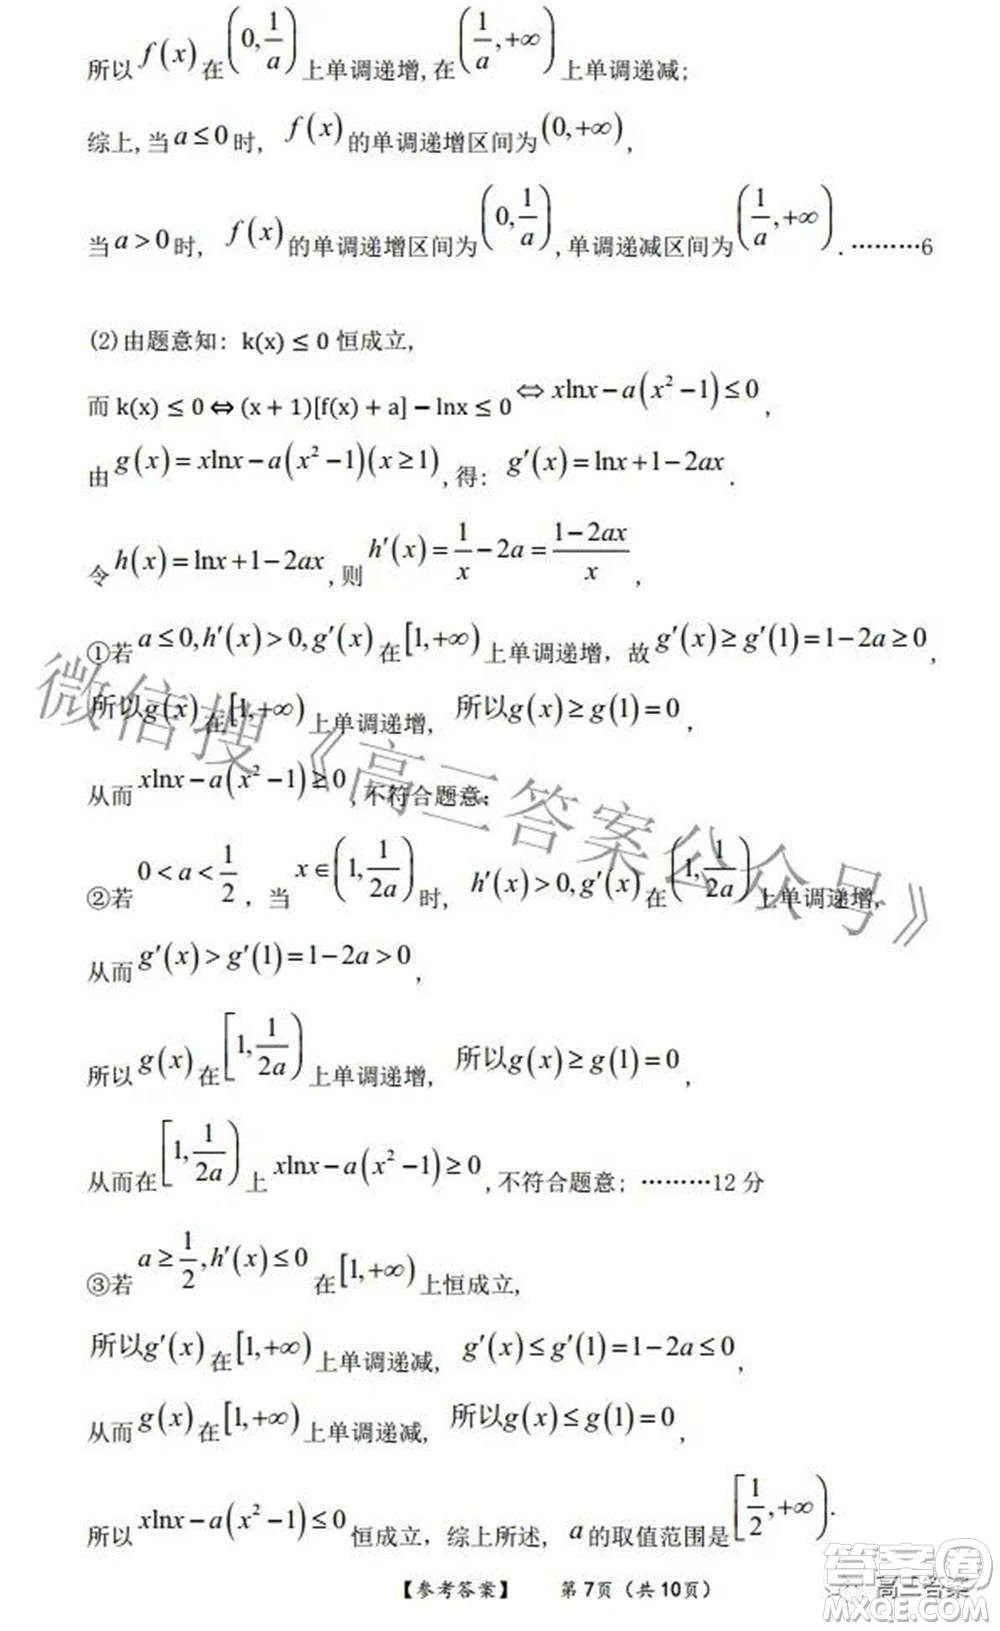 所以 f(x) 在 (0, 1/a) 上单调递增,在 (1/a, +∞) 上单调递减;
综上,当 a≤0 时, f(x) 的单调递增区间为 (0,+∞),
当 a>0 时, f(x) 的单调递增区间为 (0, 1/a),单调递减区间为 (1/a, +∞). ………6
(2)由题意知: k(x) ≤ 0 恒成立,
而 k(x) ≤ 0 ⇔ (x + 1)[f(x) + a] − lnx ≤ 0 ⇔ xlnx − a(x² − 1) ≤ 0,
由 g(x) = xlnx − a(x² − 1)(x ≥ 1),得: g′(x) = lnx + 1 − 2ax.
令 h(x) = lnx + 1 − 2ax,则 h′(x) = 1/x − 2a = (1−2ax)/x,
①若 a ≤ 0, h′(x) > 0, g′(x) 在 [1,+∞) 上单调递增，故 g′(x) ≥ g′(1) = 1 − 2a ≥ 0,
所以g(x) 在 [1,+∞) 上单调递增, 所以g(x) ≥ g(1) = 0,
从而 xlnx − a(x² − 1) ≥ 0,不符合题意;
②若 0 < a < 1/2, 当 x∈(1, 1/2a) 时, h′(x) > 0, g′(x) 在 (1, 1/2a) 上单调递增,
从而 g′(x) > g′(1) = 1 − 2a > 0,
所以 g(x) 在 [1, 1/2a) 上单调递增, 所以g(x) ≥ g(1) = 0,
从而在 [1, 1/2a) 上 xlnx − a(x² − 1) ≥ 0,不符合题意; ………12 分
③若 a ≥ 1/2, h′(x) ≤ 0 在 [1,+∞) 上恒成立,
所以g′(x) 在 [1,+∞) 上单调递减, g′(x) ≤ g′(1) = 1 − 2a ≤ 0,
从而 g(x) 在 [1,+∞) 上单调递减, 所以g(x) ≤ g(1) = 0,
所以 xlnx − a(x² − 1) ≤ 0 恒成立，综上所述, a 的取值范围是 [1/2, +∞).
【参考答案】 第 7页（共 10页）
微信搜《高三答案公众号》
高三答案
答案圈
MXQE.COM